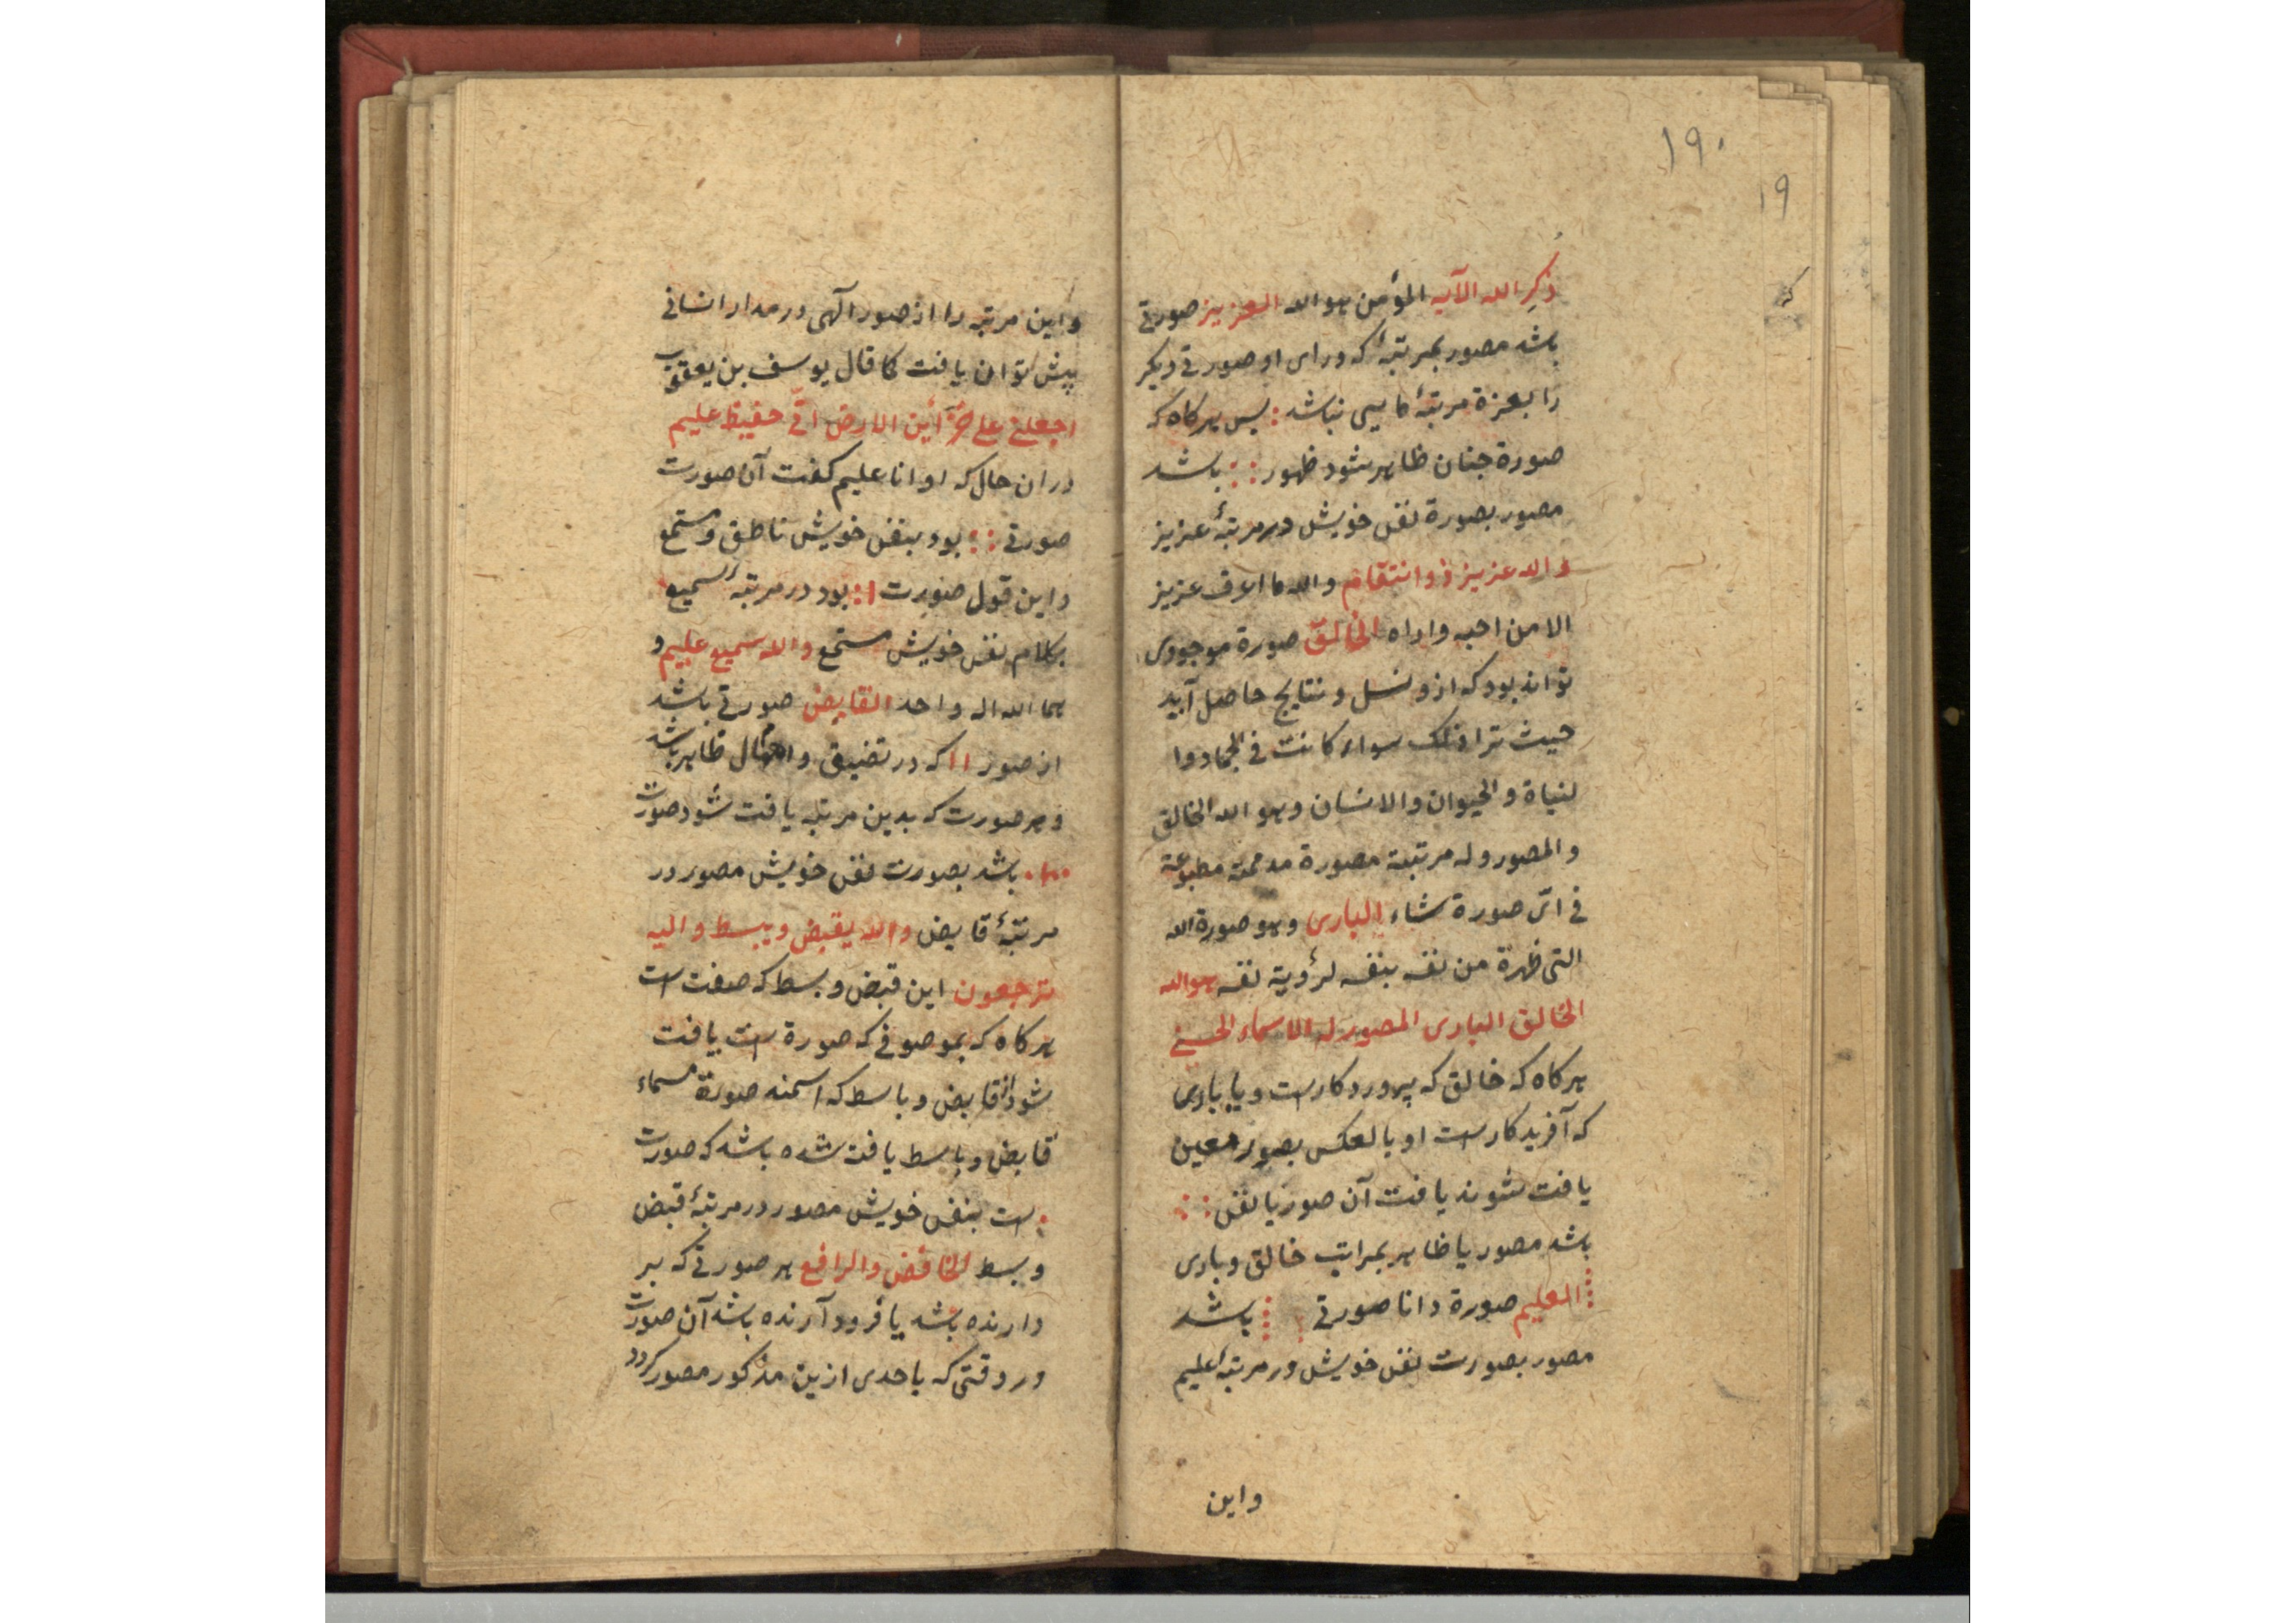 ١٩٠
١٩
ذكر الله الآيه المؤمن هو الله العزيز صورتى
باشد مصور بمرتبهٔ كه وراى او صورتى ديكر
را بعزة مرتبهٔ مايى نباشد : پس هركاه كه
صورة جنان ظاهر شود ظهور : : باشد
مصور بصورة نفس خويش در مرتبهٔ عزيز
والله عزيز ذو انتقام والله ما اعرف عزيز
الا من احبه واراه الخالق صورة موجودى
تواند بود كه ازو نسل و نتايج حاصل آيد
حيث ترا ذلك سواء كانت فى الجماد وا
لنباة والحيوان والانسان وهو الله الخالق
والمصور وله مرتبة مصورة مطبوعة
فى اىّ صورة شاء البارى وهو صورة الله
التى ظهرة من نفسه بنفسه لرؤية نفسه هو الله
الخالق البارى المصور له الاسماء الحسنى
هركاه كه خالق كه پروردكارست و يا بارى
كه آفريدكارست او بالعكس بصور معين
يافت شوند يافت آن صور يا نفس : :
باشد مصور يا ظاهر بمراتب خالق و بارى
العليم صورة دانا صورتى باشد
مصور بصورت نفس خويش در مرتبهٔ عليم
واين
واين مرتبه را از صور آلهى در مدار انسانى
پيش توان يافت كما قال يوسف بن يعقوب
اجعلنى على خزآئن الارض انّى حفيظ عليم
دران حال كه او انا عليم كفت آن صورت
صورتى : : بود بنفس خويش ناطق و مستمع
واين قول صورت ا : بود در مرتبهٔ سميع
بكلام نفس خويش مستمع والله سميع عليم و
هما الله اله واحد القابض صورتى باشد
از صور ١١ كه در تضييق و ظاهر باشد
و هر صورت كه بدين مرتبه يافت شود صورت
باشد بصورت نفس خويش مصور در
مرتبهٔ قابض والله يقبض ويبسط واليه
ترجعون اين قبض و بسط كه صفت ست
هركاه كه بموصوفى كه صورة ست يافت
شود از قابض و باسط كه اسمند صورة مسماء
قابض و باسط يافت شده باشد كه صورت
: ست بنفس خويش مصور در مرتبهٔ قبض
و بسط الخافض والرافع هر صورتى كه بر
دارنده باشد يا فرود آرنده باشد آن صورت
در وقتى كه باحدى ازين مذكور مصور كردد